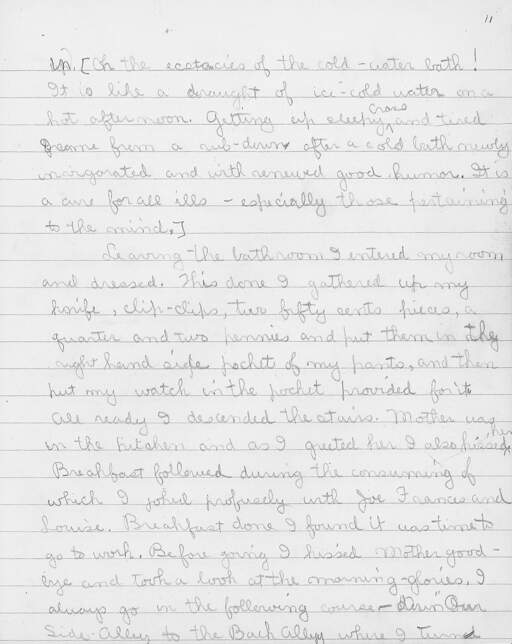 11
up. [Oh the ecstacies of the cold-water bath!
It is like a draught of ice-cold water on a
hot afternoon. Getting up sleepy, cross and tired
I come from a rub-down after a cold bath newly
invigorated and with renewed good humor. It is
a cure for all ills - especially those pertaining
to the mind.]
Leaving the bathroom I entered my room
and dressed. This done I gathered up my
knife, clip-clips, two fifty cents pieces, a
quarter and two pennies and put them in the
right hand side pocket of my pants, and then
put my watch in the pocket provided for it.
All ready I descended the stairs. Mother was
in the kitchen and as I greeted her I also kissed her.
Breakfast followed during the consuming of
which I joked profusely with Joe Frances and
Louise. Breakfast done I found it was time to
go to work. Before going I kissed Mother good-
bye and took a look at the morning-glories. I
always go in the following course - down Our
Side-Alley to the Back Alley where I Turn